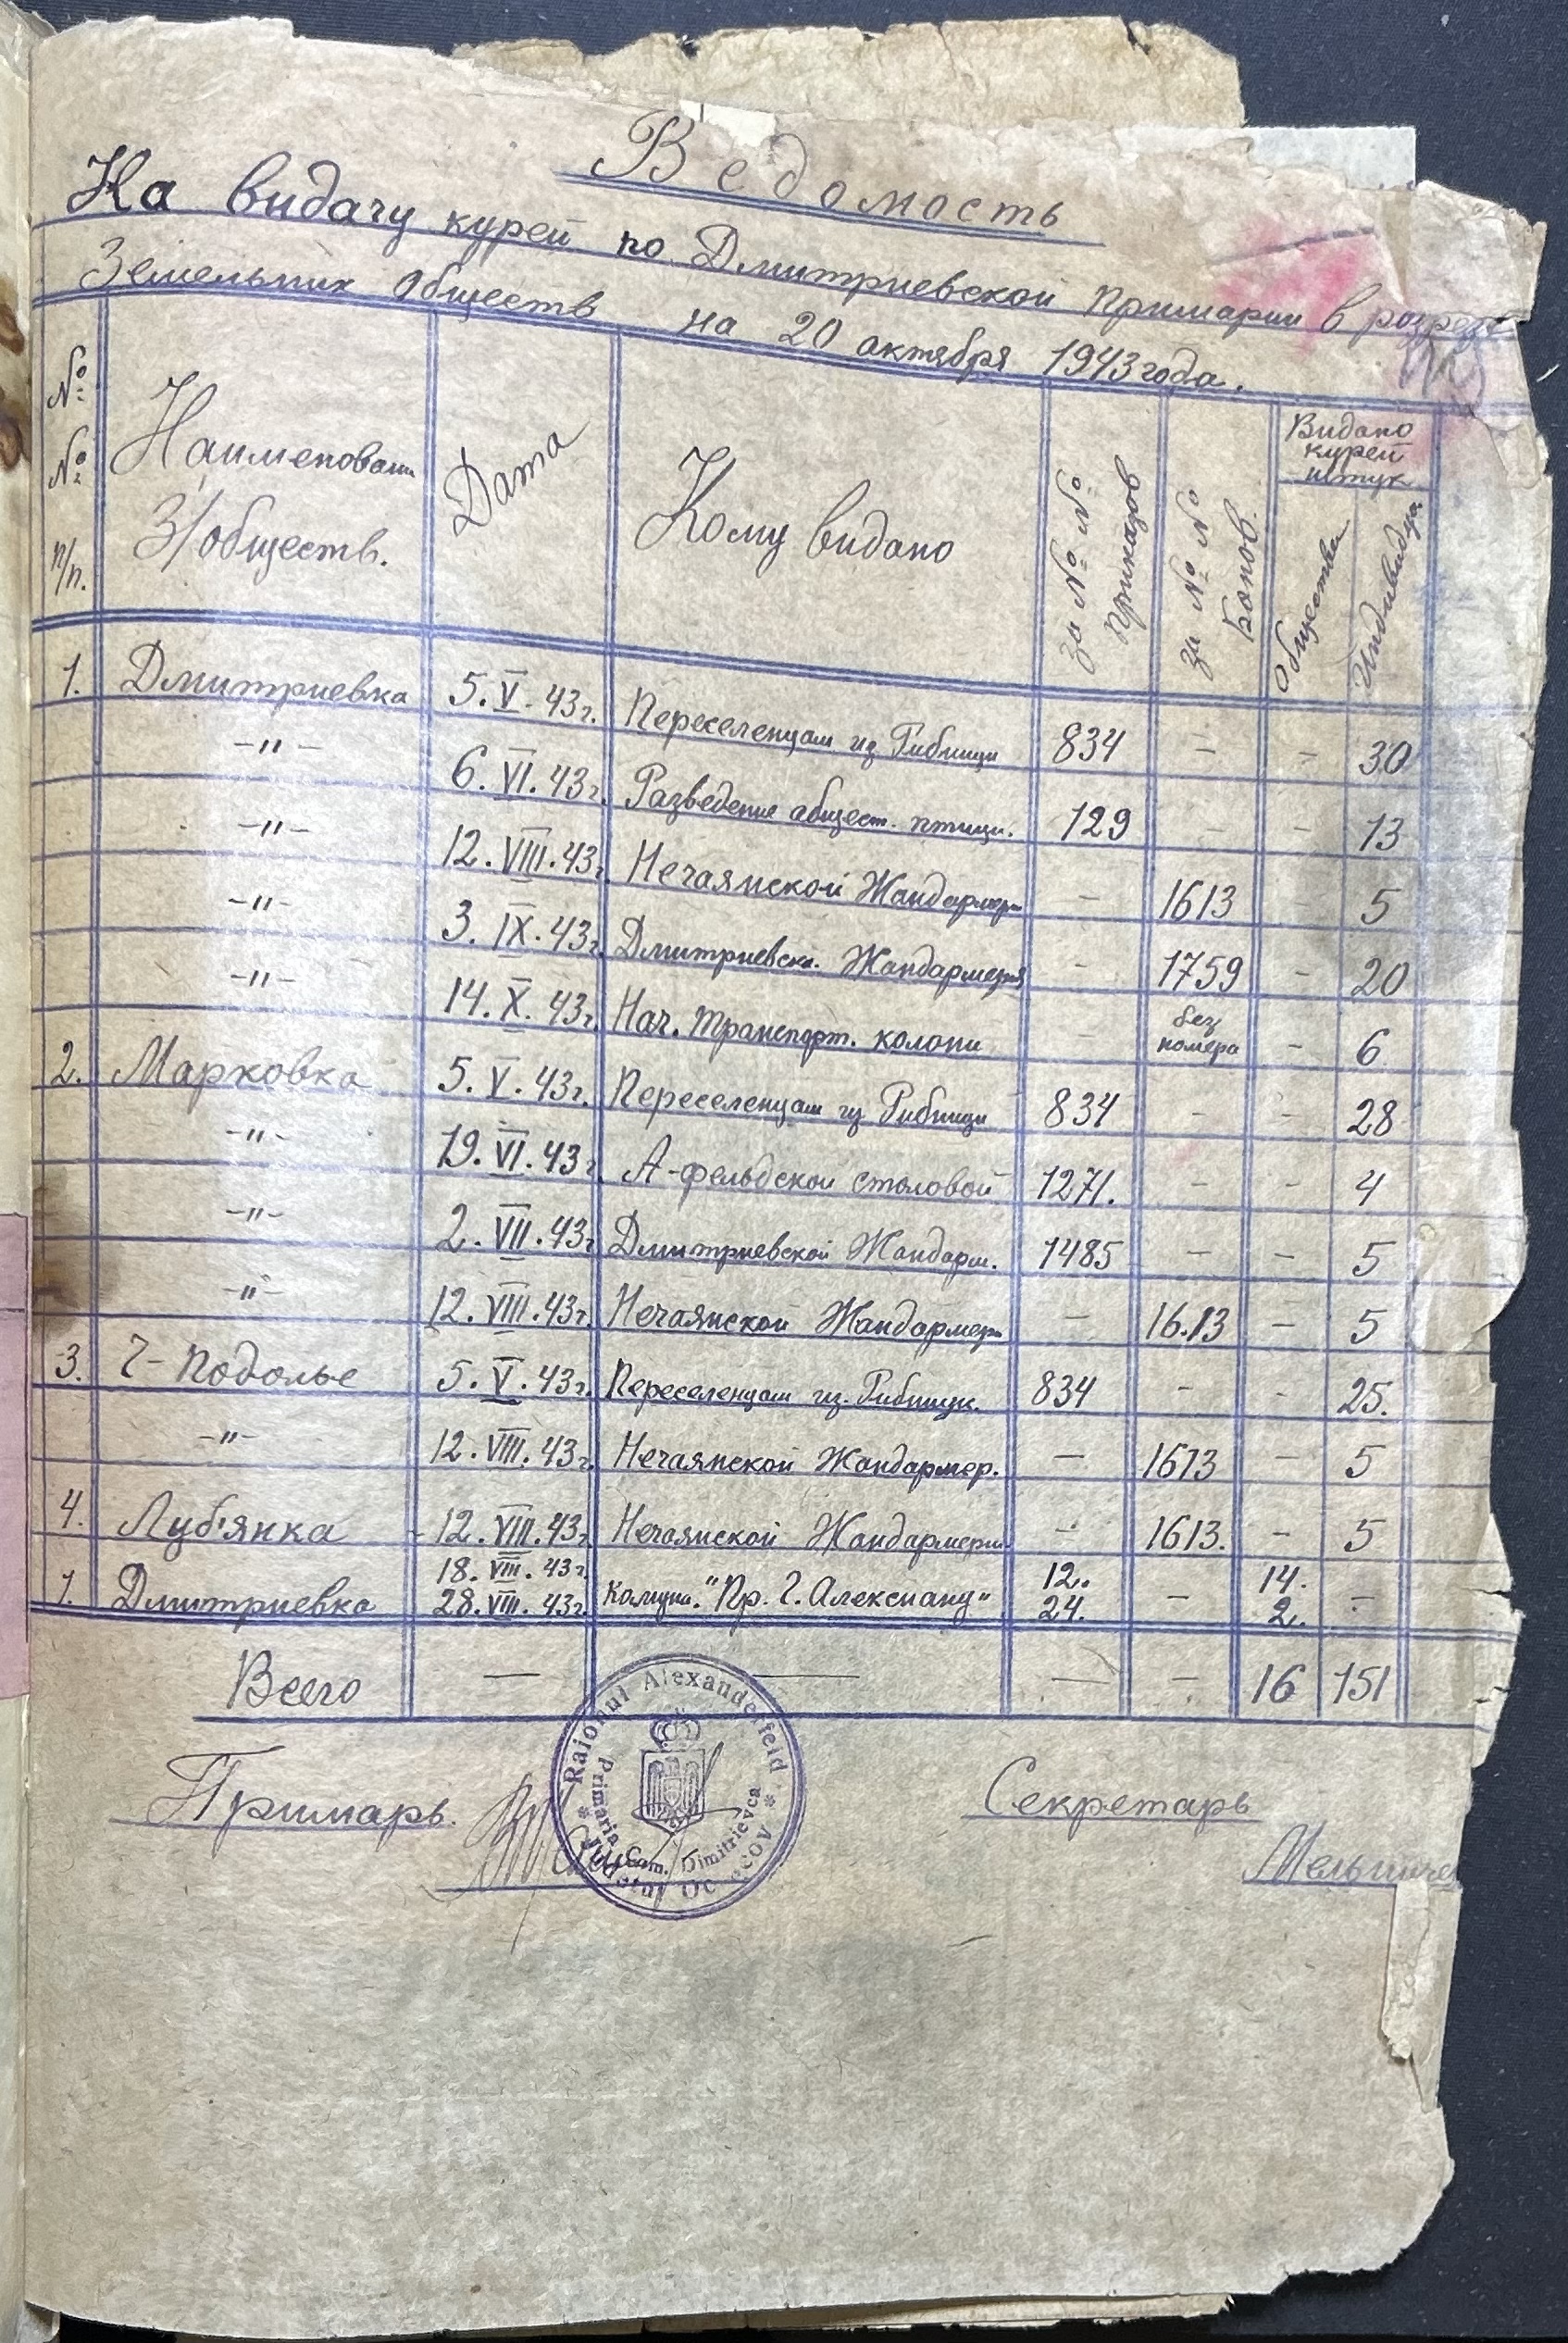 Ведомость
На видачу курей по Дмитриевской Примарии в розрезе
Земельних Обществ на 20 октября 1943 года.
№ № п/п. Наименовани З/обществ. Дата Кому видано за № № Приказов за № № Бонов. Видано курей штук Обществен Индивидуа
1. Дмитриевка 5.V.43г. Переселенцам из Рибници 834 - - 30
-"- 6.VI.43г. Разведение общест. птици. 129 - - 13
-"- 12.VIII.43г. Нечаянской Жандармер - 1613 - 5
-"- 3.IX.43г. Дмитриевск. Жандармерия - 1759 - 20
-"- 14.X.43г. Нач. Транспорт. колони - без номера - 6
2. Марковка 5.V.43г. Переселенцам из Рибници 834 - - 28
-"- 19.VI.43г. А-фельдской столовой 1271. - - 4
-"- 2.VII.43г. Дмитриевской Жандарм. 1485 - - 5
-"- 12.VIII.43г. Нечаянской Жандармер - 16.13 - 5
3. Г-Подолье 5.V.43г. Переселенцам из. Рибници. 834 - - 25.
-"- 12.VIII.43г. Нечаянской Жандармер. - 1613 - 5
4. Луб'янка 12.VIII.43г. Нечаянской Жандармери - 1613. - 5
1. Дмитриевка 18.VIII.43г. 28.VIII.43г. "Пр. Г. Алексиану" 12. 24. - 14. 2. -
Всего - - - - 16 151
Примарь.
Секретарь
Raionul Alexanderfeld
Primaria Com. Dimitrievca
Judetul Oceacov